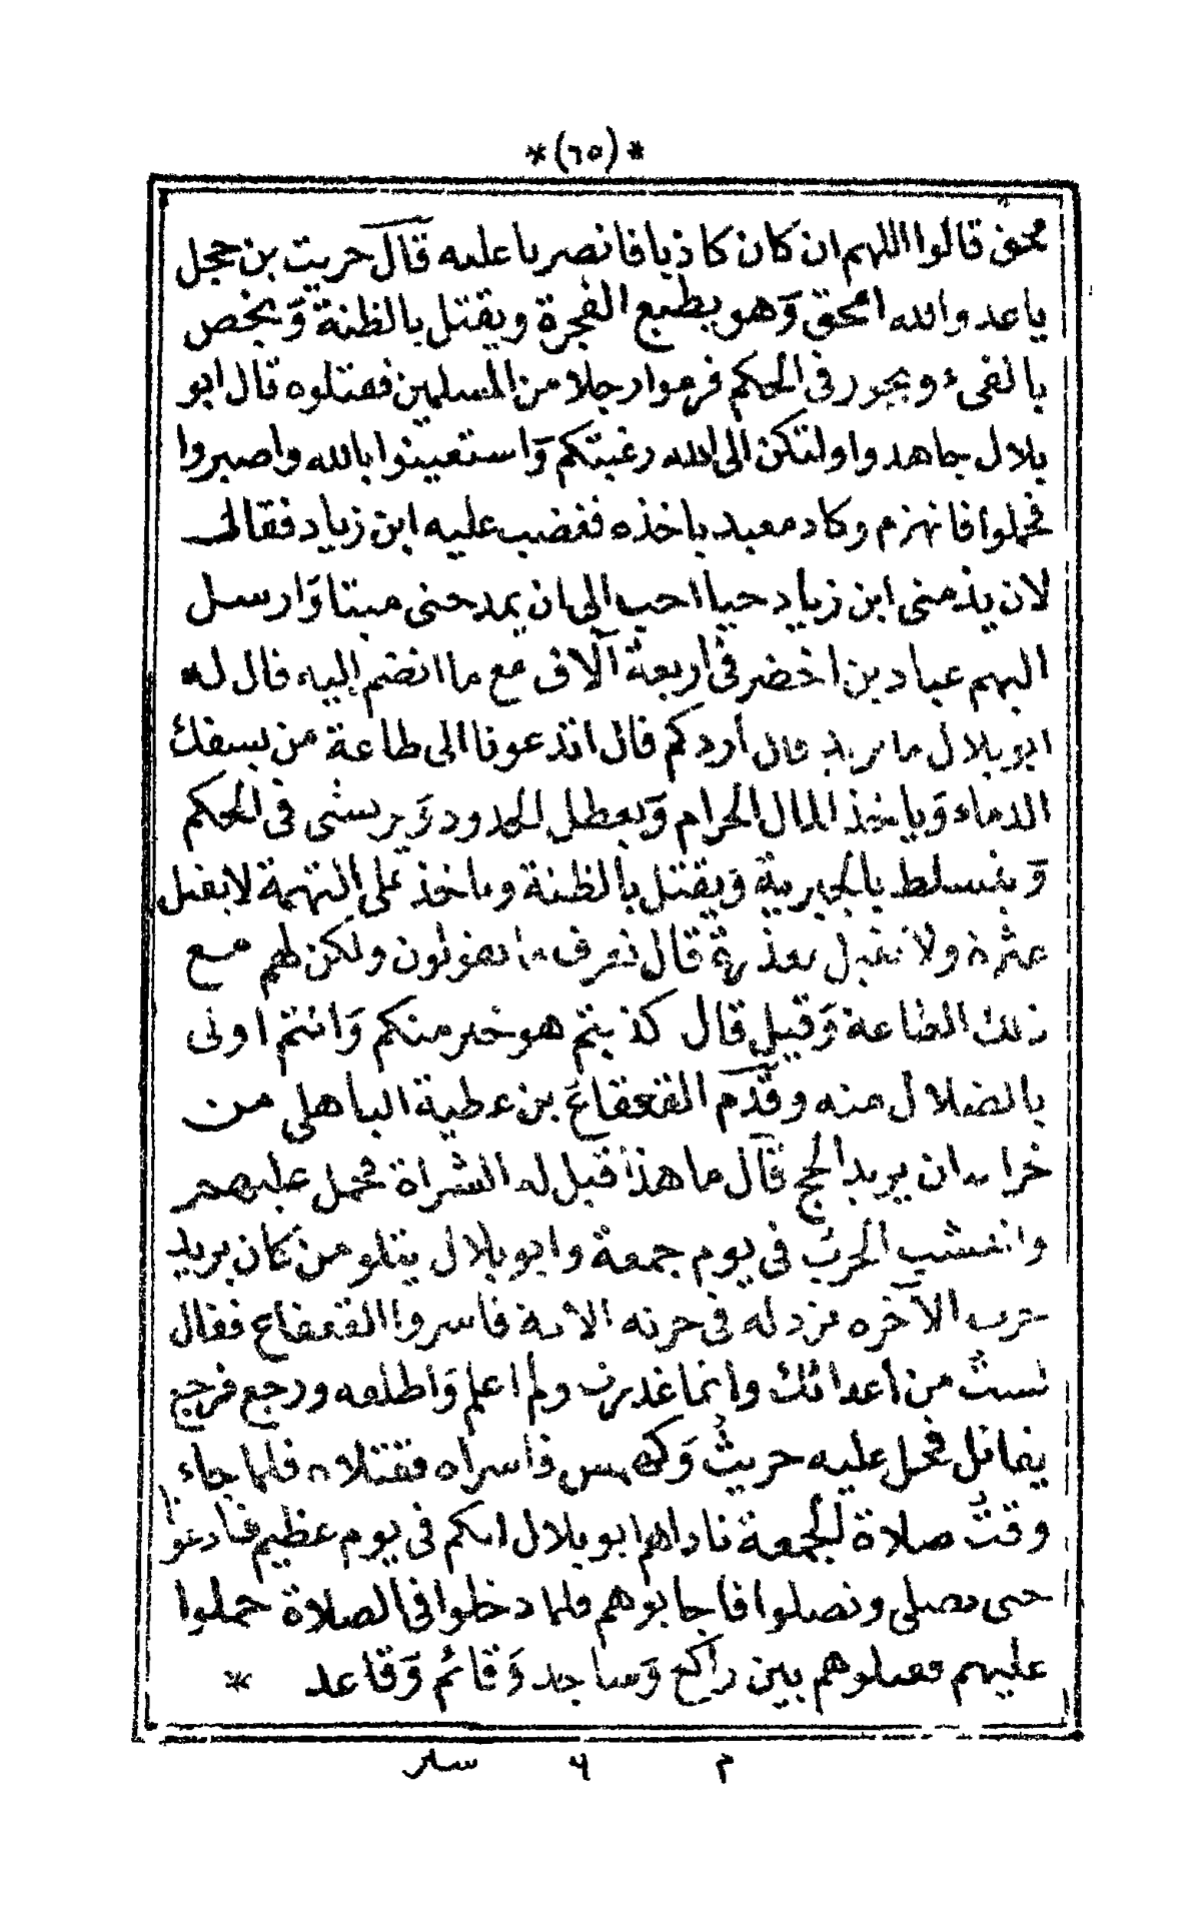 *(٦٥)*
محق قالوا اللهم ان كان كاذبا فانصرنا عليه قال حريث بن حجل
ياعدو الله امحق وهو يطيع الفجرة ويقتل بالظنة ويخص
بالفىء ويجور فى الحكم فرموا رجلا من المسلمين فقتلوه قال ابو
بلال جاهدوا ولتكن الى الله رغبتكم واستعينوا بالله واصبروا
فحملوا فانهزم وكاد معبد ياخذه فغضب عليه ابن زياد فقال
لان يذمنى ابن زياد حيا احب الى ان يمدحنى ميتا وارسل
اليهم عباد بن اخضر فى اربعة آلاف مع ما انضم اليه قال له
ابو بلال ما تريد قال اردكم قال اتدعونا الى طاعة من يسفك
الدماء وياخذ المال الحرام ويعطل الحدود ويرتشى فى الحكم
ويتسلط بالجبرية ويقتل بالظنة وياخذ على التهمة لا يقيل
عثرة ولا يقبل معذرة قال نعرف ما تقولون ولكن لهم مع
ذلك الطاعة وقيل قال كذبتم هو خير منكم وانتم اولى
بالضلال منه وقدم القعقاع بن عطية الباهلى من
خراسان يريد الحج قال ما هذا قيل له الشراة فحمل عليهم
وانتشب الحرب فى يوم جمعة وابو بلال يتلو من كان يريد
حرث الآخرة نزد له فى حرثه الاية فاسروا القعقاع فقال
لست من اعدائك وانما غدرت ولم اعلم واطلقه ورجع فرجع
يقاتل فحمل عليه حريث وكهمس فاسراه فقتلاه فلما جاء
وقت صلاة الجمعة ناداهم ابو بلال انكم فى يوم عظيم فوادعونا
حتى نصلى وتصلوا فاجابوهم فلما دخلوا فى الصلاة حملوا
عليهم فقتلوهم بين راكع وساجد وقائم وقاعد *
م ٦ سير